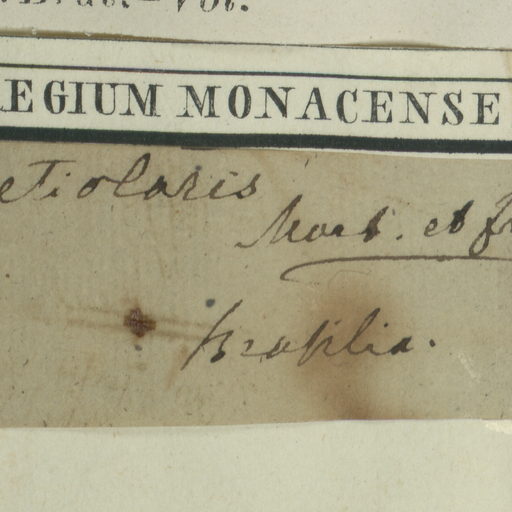 EGIUM MONACENSE
etiolaris
Mart. et
Brasilia.